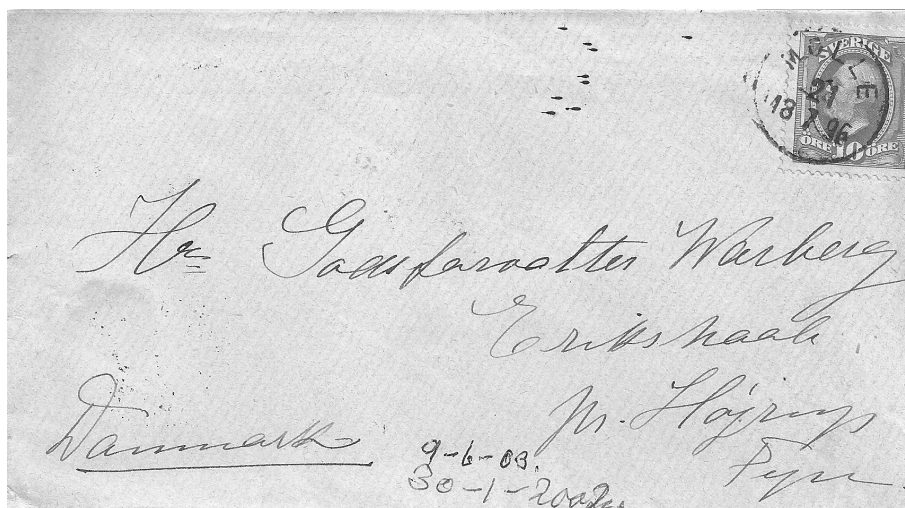 MEYLE
SVERIGE
27
18 7 96
ÖRE 10 ÖRE
Hr Godsforvalter Warberg
Erikshaab
pr. Højrup
Fyn
Danmark
9-6-03.
30-1-2002